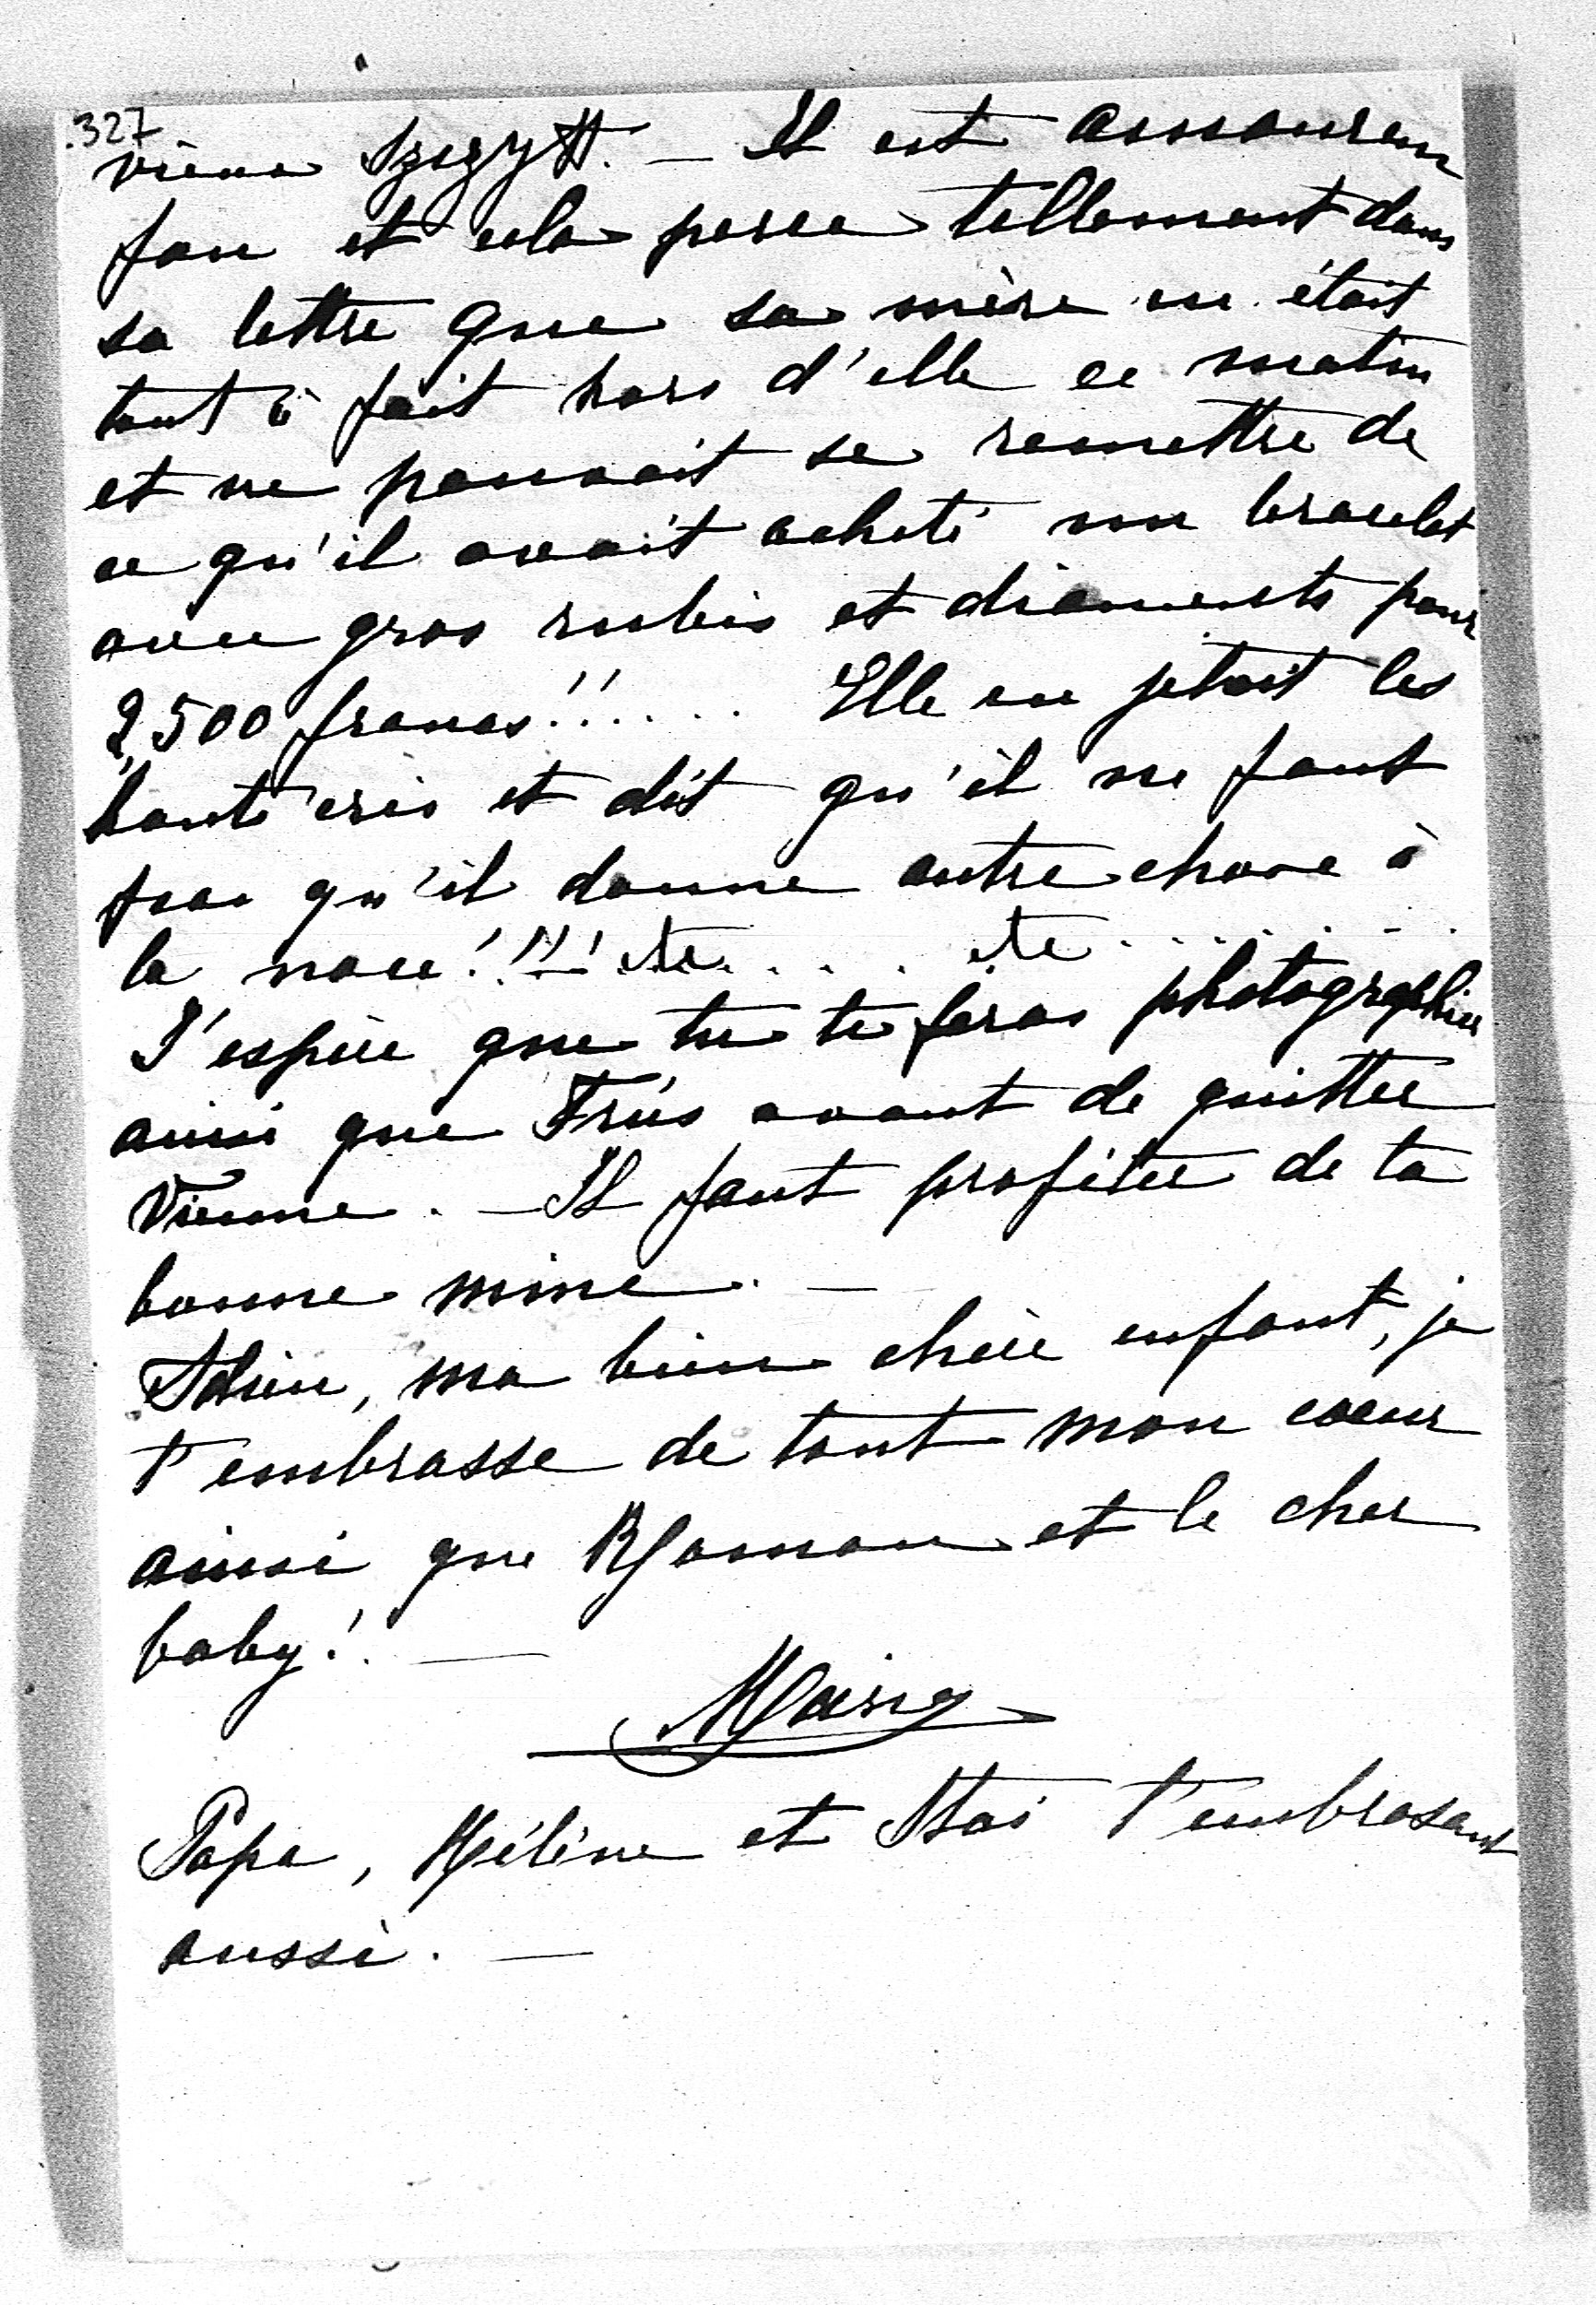 327
Szegytt. — Il est amoureux
fou et cela perce tellement dans
sa lettre que sa mère en était
tout à fait hors d'elle ce matin
et ne pouvait se remettre de
ce qu'il avait acheté un bracelet
avec gros rubis et diamants pour
2,500 francs!!..... Elle en jetait les
hauts cris et dit qu'il ne faut
pas qu'il donne autre chose à
la noce!!!! etc.... etc.......
J'espère que tu te feras photographier
ainsi que Früs avant de quitter
Vienne. — Il faut profiter de ta
bonne mine. —
Adieu, ma bien chère enfant, je
t'embrasse de tout mon cœur
ainsi que Maman et le cher
baby! —
Papa, Hélène et Stas t'embrasent
aussi. —